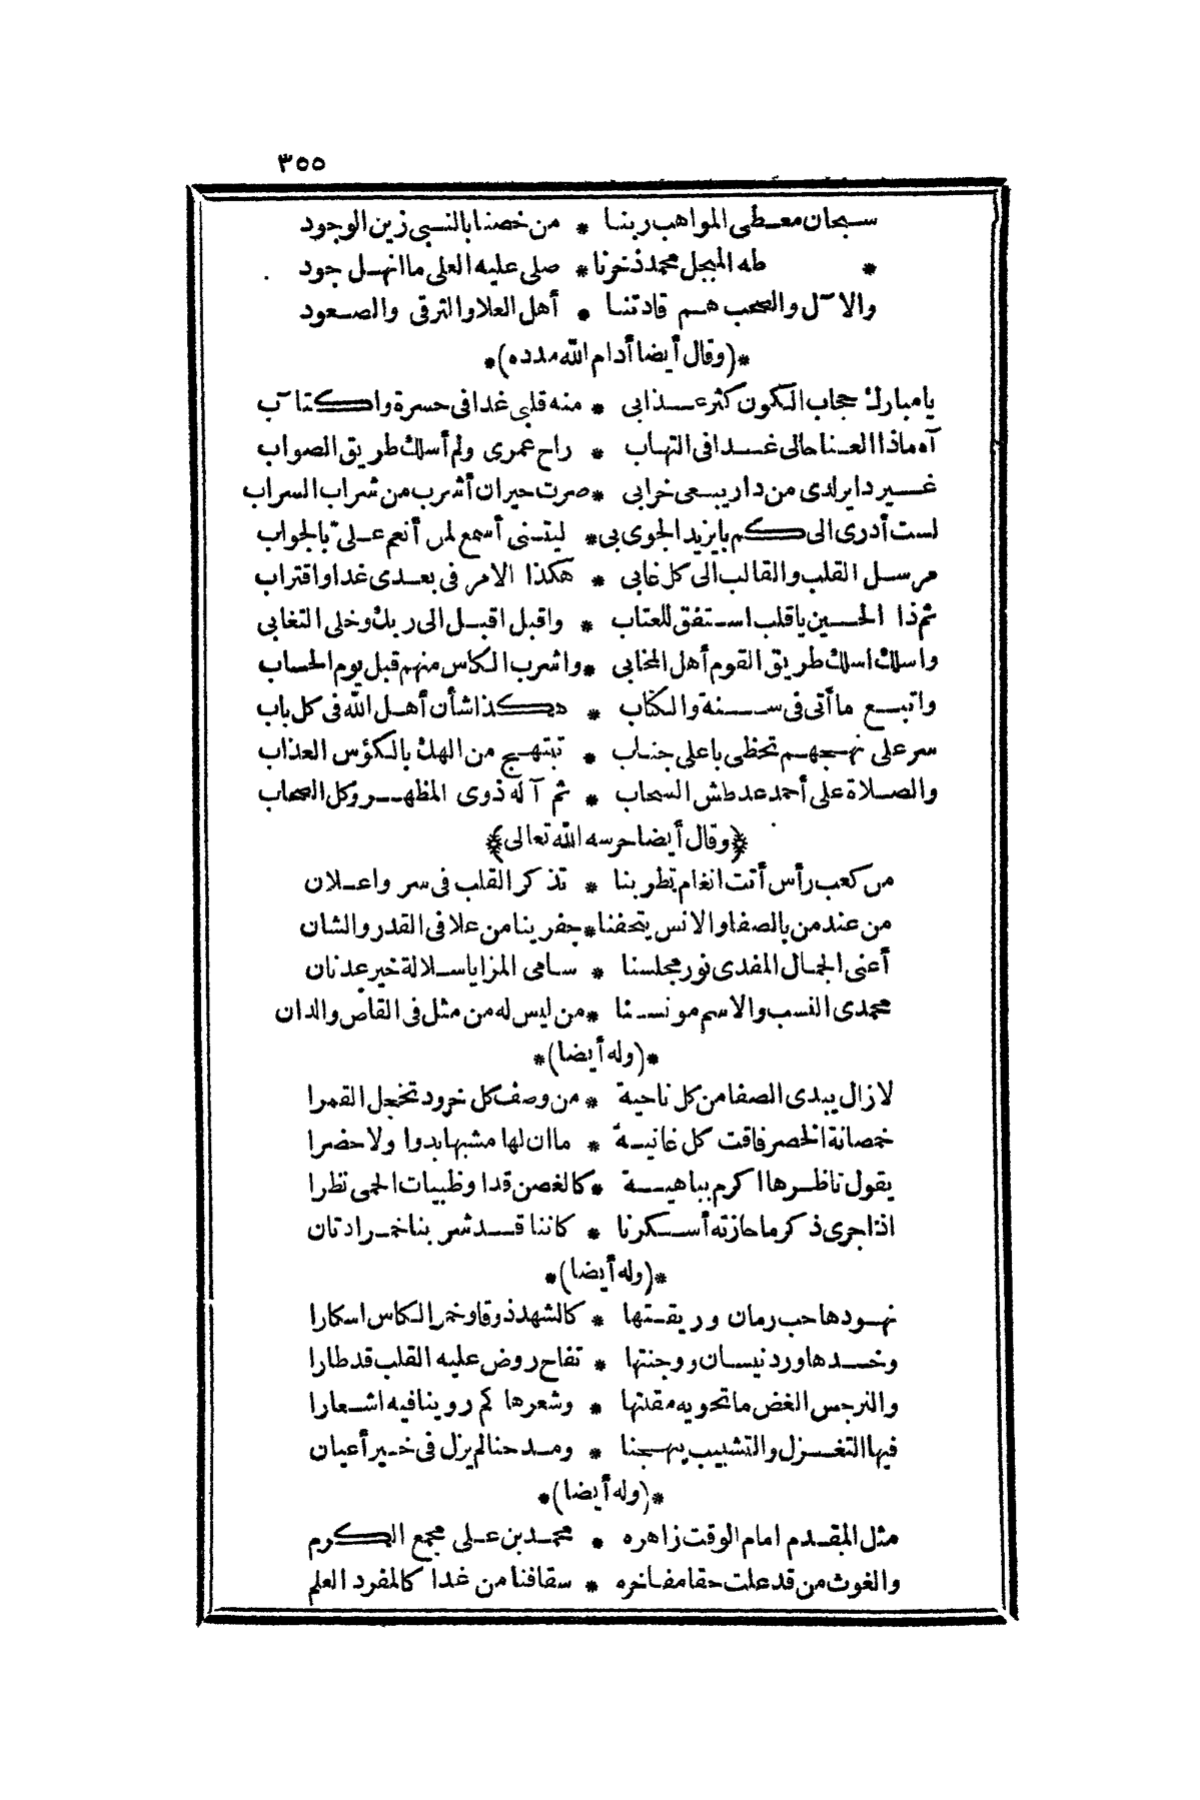 ٣٥٥
سبحان معطى المواهب ربنا * من خصنا بالنبى زين الوجود
* طه المبجل محمد ذخرنا * صلى عليه العلى ما انهل جود
والآل والصحب هم قادتنا * أهل العلا والترقى والصعود
*(وقال أيضا أدام الله مدده)*
يا مبارك حجاب الكون كثر عذابى * منه قلبى غدا فى حسرة واكتآب
آه ماذا العنا حالى غدا فى التهاب * راح عمرى ولم أسلك طريق الصواب
غير داير لدى من دار يسعى خرابى * صرت حيران أشرب من شراب السراب
لست أدرى الى كم يا يزيد الجوى بى * ليتنى أسمع لمن أنعم علىّ بالجواب
مرسل القلب والقالب الى كل غابى * هكذا الامر فى بعدى غدا واقتراب
ثم ذا الحسين يا قلب استفق للعتاب * واقبل اقبل الى ربك وخلى التغابى
واسلك اسلك طريق القوم أهل المخابى * واشرب الكاس منهم قبل يوم الحساب
واتبع ما أتى فى سنة والكتاب * هكذا شأن أهل الله فى كل باب
سر على نهجهم تحظى باعلى جناب * تبتهج من الهك بالكؤس العذاب
والصلاة على أحمد عد طش السحاب * ثم آله ذوى المظهر وكل الصحاب
﴿وقال أيضا حرسه الله تعالى﴾
من كعب رأس أتت انغام تطربنا * تذكر القلب فى سر واعلان
من عند من بالصفا والانس يتحفنا * جفرينا من علا فى القدر والشان
أعنى الجمال المفدى نور مجلسنا * سامى المزايا سلالة خير عدنان
محمدى النسب والاسم مونسنا * من ليس له من مثل فى القاص والدان
*(وله أيضا)*
لازال يبدى الصفا من كل ناحية * من وصف كل خرود تخجل القمرا
خمصانة الخصر فاقت كل غانية * ما ان لها مشبها بدوا ولا حضرا
يقول ناظرها اكرم بباهية * كالغصن قدا وظبيات الحمى نظرا
اذا جرى ذكر ما حازته أسكرنا * كاننا قد شربنا خمرادنان
*(وله أيضا)*
نهودها حب رمان وريقتها * كالشهد ذوقا وخمر الكاس اسكارا
وخدها ورد نيسان ووجنتها * تفاح روض عليه القلب قد طارا
والنرجس الغض ما تحويه مقلتها * وشعرها كم روينا فيه اشعارا
فيها التغزل والتشبيب يهجنا * ومدحنا لم يزل فى خير أعيان
*(وله أيضا)*
مثل المقدم امام الوقت زاهره * محمد بن على مجمع الكرم
والغوث من قد علت حقا مفاخره * سقافنا من غدا كالمفرد العلم